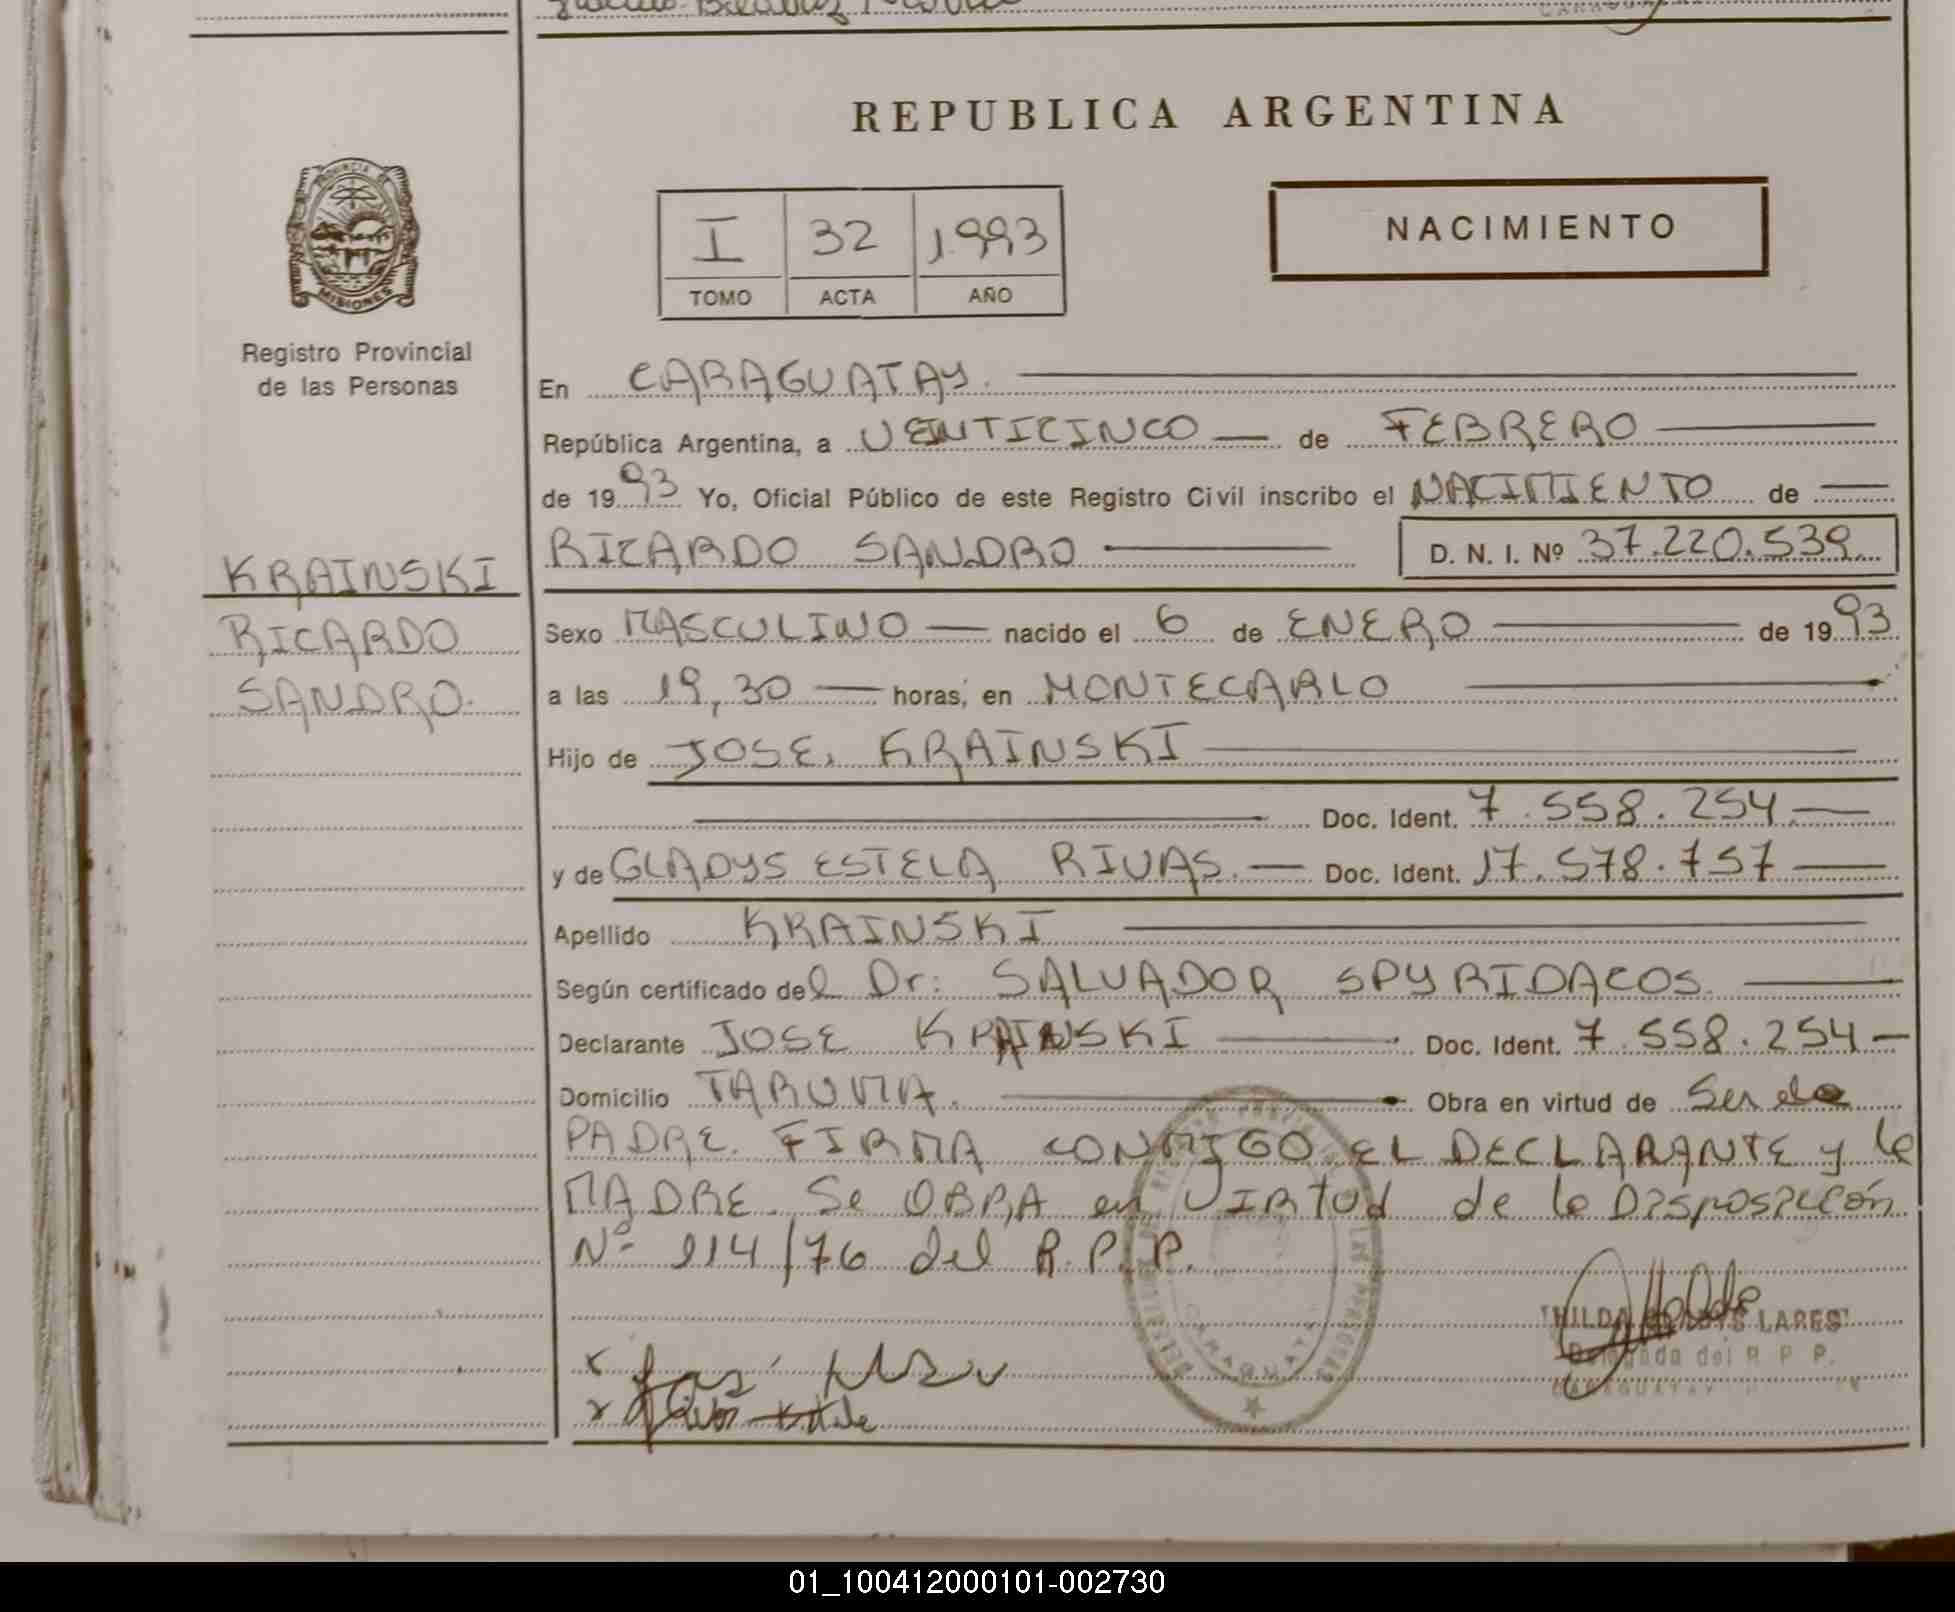 REPUBLICA ARGENTINA
PROVINCIA DE
MISIONES
Registro Provincial
de las Personas
I 32 1.993
TOMO ACTA AÑO
NACIMIENTO
En CARAGUATAY.
República Argentina, a VEINTICINCO — de FEBRERO
de 1993 Yo, Oficial Público de este Registro Civil inscribo el NACIMIENTO de
RICARDO SANDRO D. N. I. Nº 37.220.539
KRAINSKI
RICARDO
SANDRO.
Sexo MASCULINO — nacido el 6 de ENERO de 1993
a las 19,30 — horas, en MONTECARLO
Hijo de JOSE, KRAINSKI
Doc. Ident. 7.558.254.—
y de GLADYS ESTELA RIVAS.— Doc. Ident. 17.578.757—
Apellido KRAINSKI
Según certificado del Dr: SALVADOR SPYRIDACOS.
Declarante JOSE KRAINSKI Doc. Ident. 7.558.254—
Domicilio TARUMA. Obra en virtud de Ser de
PADRE. FIRMA CONMIGO EL DECLARANTE y la
MADRE. Se OBRA en VIRTUD de la Disposición
Nº 114/76 del R.P.P.
HILDA GLADYS LARES
Delegada del R. P. P.
CARAGUATAY
CARAGUATAY
01_100412000101-002730